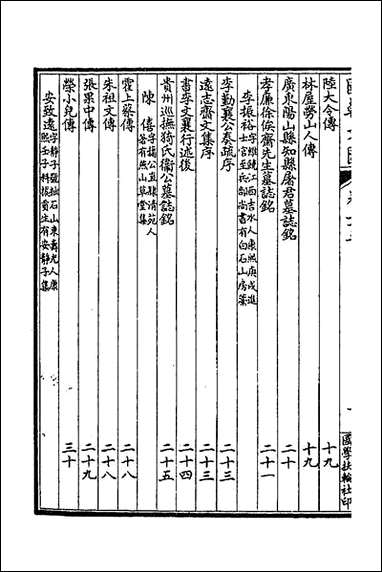 國朝文匯
陸大令傳 十九
林屋勞山人傳 十九
廣東陽山縣知縣屠君墓誌銘 二十
孝廉徐俟齋先生墓誌銘 二十一
李振裕 字維饒江西吉水人康熙庚戌進士官至兵部尚書有白石山房藁
李勤襄公奏疏序 二十三
遠志齋文集序 二十三
書李文襄行述後 二十四
貴州巡撫猗氏衞公墓誌銘 二十五
陳僖 字藹公直隸清苑人著有燕山草堂集
霍上蔡傳 二十八
朱祖文傳 二十八
張果中傳 二十九
榮小兒傳 三十
安致遠 字靜子號拙石山東壽光人康熙壬子科拔貢生有安靜子集
國學扶輪社印